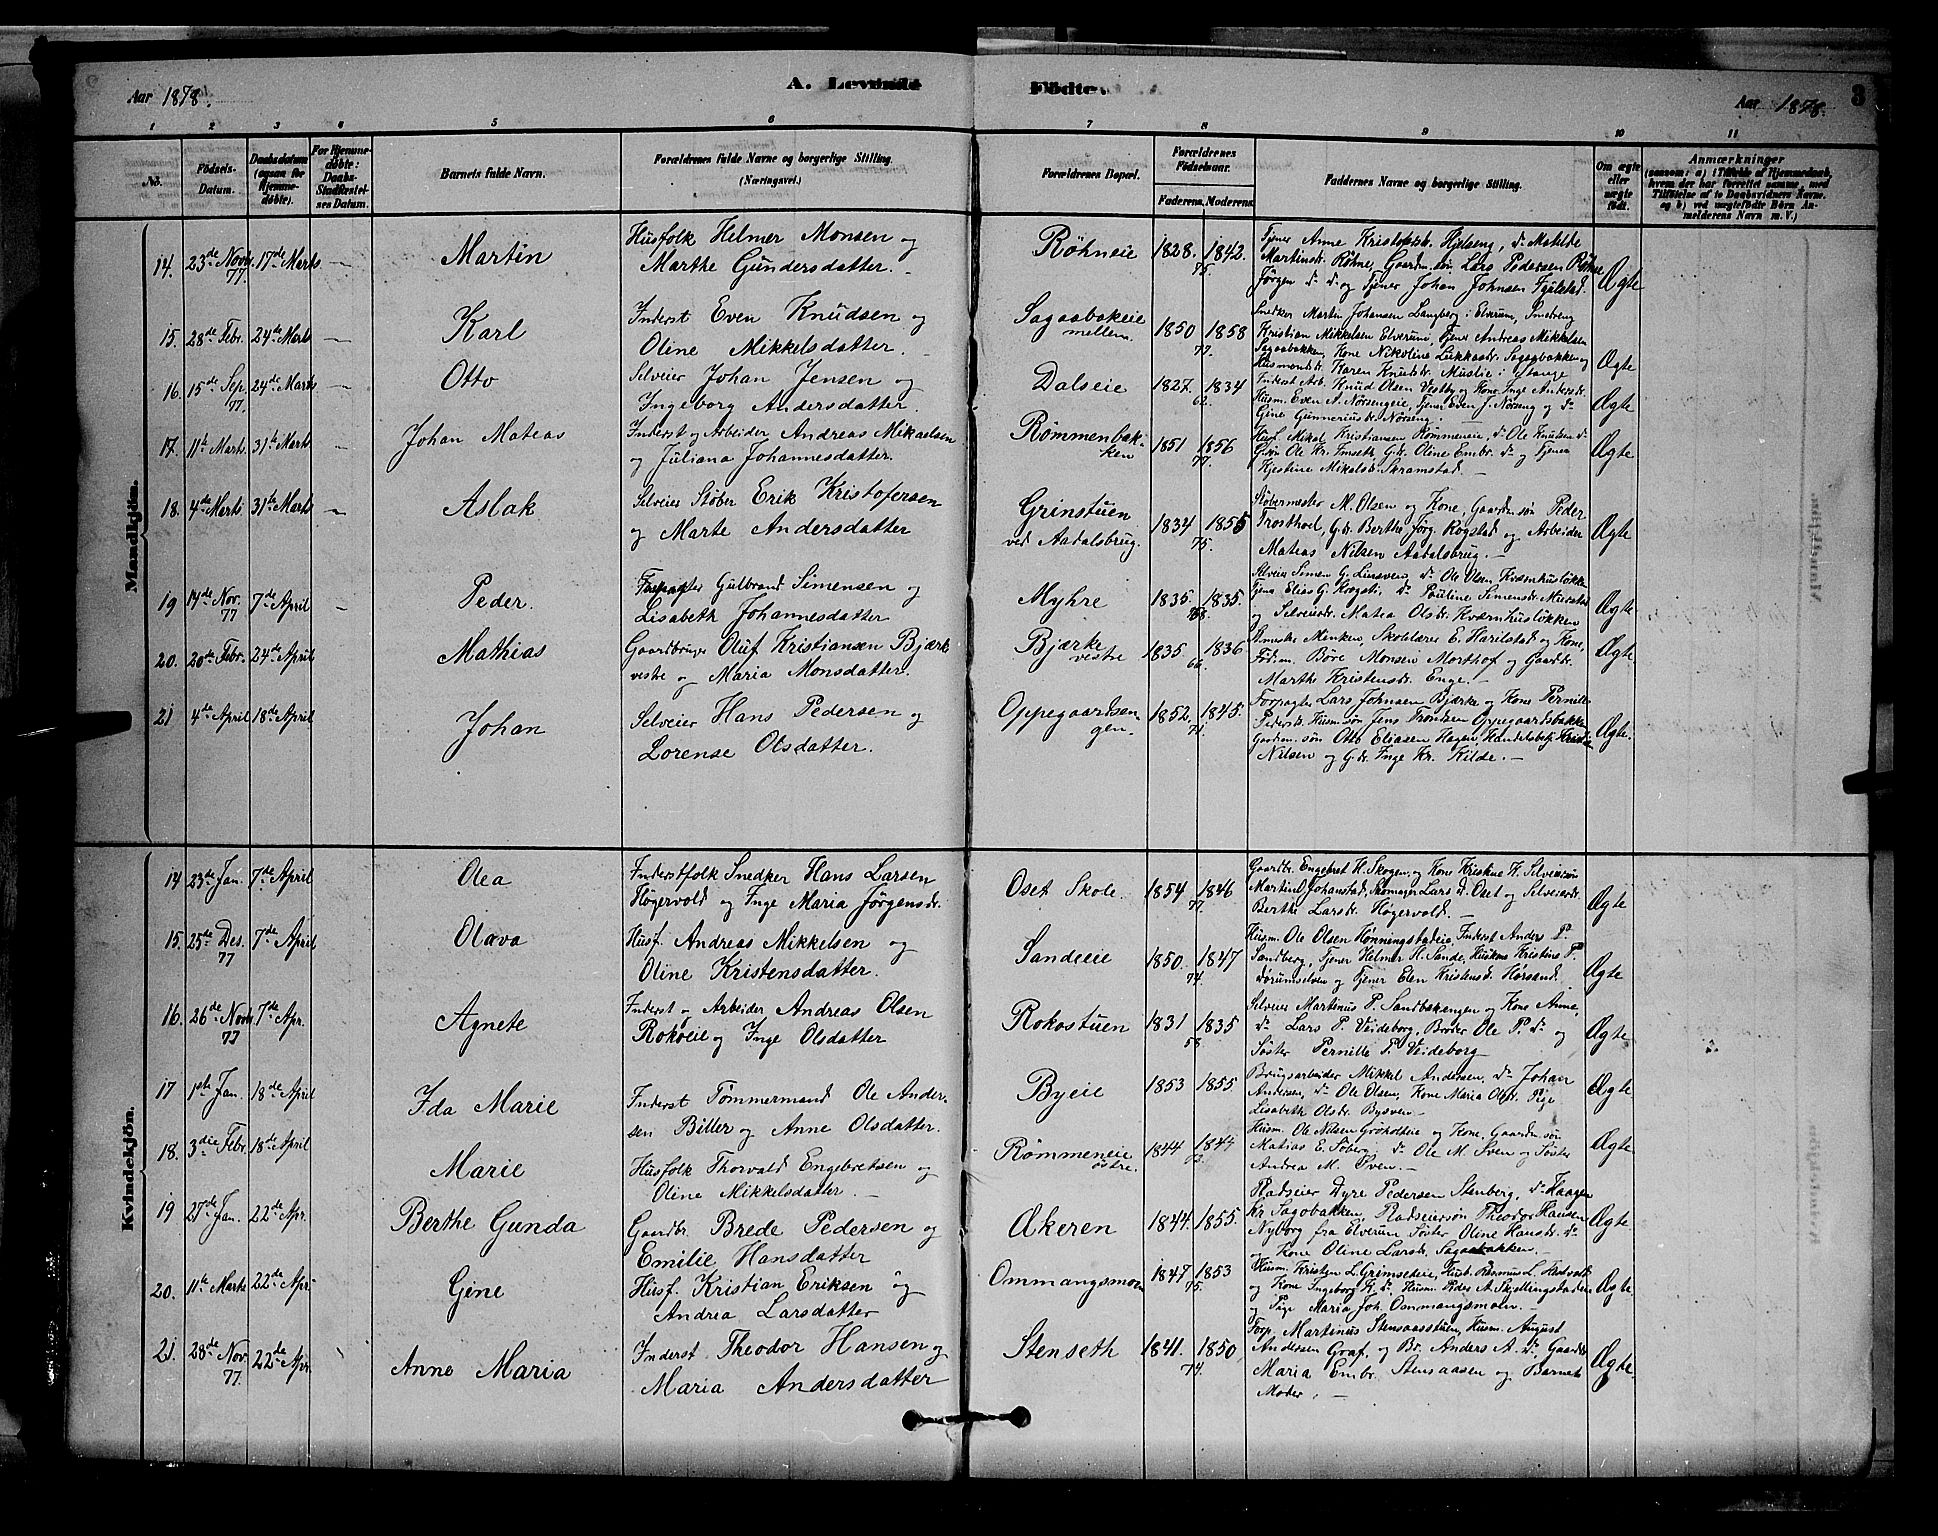 Aar 1878. A. Levende Fødte. Aar 1878. 3
1 2 3 4 5 6 7 8 9 10 11
No. Fødsels-Datum. Daabsdatum (ogsaa for Hjemmedøbte). For Hjemmedøbte: Daabs-Stadfæstelses Datum. Barnets fulde Navn. Forældrenes fulde Navne og borgerlige Stilling. (Næringsvei.) Forældrenes Bopæl. Forældrenes Fødselsaar. Faderens. Moderens. Faddernes Navne og borgerlige Stilling. Om ægte eller uægte født. Anmærkninger (saasom: a) i Tilfælde af Hjemmedaab, hvem der har forrettet samme, med Tilføielse af to Daabsvidners Navne. og b) ved uægtefødte Børn Anmelderens Navn m. V.)
Mandkjön.
14. 23de Novr. 77. 17de Marts — Martin Husfolk Helmer Monsen og
Marthe Gundersdatter. Röhneie 1828. 1842. 75. Tjener Anne Kristofsdr. Hjelseng, do Matilde
Martinsdr. Röhne, Gaardm.søn Lars Pedersen Röhne
Jørgen do do og Tjener Johan Johnsen Fjulstad. Ægte
15. 28de Febr. 24de Marts — Karl Inderst Even Knudsen og
Oline Mikkelsdatter. Sagaabakeie mellem 1850 1858 77. Snedker Martin Johansen Langberg i Elverum, Smedreng
Kristian Mikkelsen Elverum, Tjener Andreas Mikkelsen
Sagaabakken, Kone Nikoline Lukkasdr. Sagaabakken og
Husmandsdr. Karen Knudsdr. Muslie i Stange Ægte
16. 15de Sep. 77. 24de Marts — Otto Selveier Johan Jensen og
Ingeborg Andersdatter. Dalseie 1827. 1834 62. Inderst Arb. Knud Olsen Vestby og Kone Inge Andersdr.
Husm. Even A. Nörsengeie, Tjener Even J. Nörseng og do
Gine Gunneriusdr. Nörseng. Ægte
17. 11te Marts. 31te Marts — Johan Mateas Inderst og Arbeider Andreas Mikaelsen
og Juliana Johannesdatter. Rømmenbakken 1851 1856 77. Husf. Mikal Kristiansen Rømmeneie, do Ole Knudsen do
Gdsøn Ole Kr. Imseth G.dr. Oline Embr. do og Tjener
Kjestine Mikalsdr. Skramstad. Ægte
18. 4de Marts 31te Marts — Aslak Selveier Støber Erik Kristofersen
og Marte Andersdatter Grinstuen ved Aadalsbrug. 1834 1855 75. Støbermester M. Olsen og Kone, Gaardm.søn Peder
Trosthoel, G.dr. Berthe Jørg. Rogstad og Arbeider
Mateas Nilsen Aadalsbrug. Ægte
19 14de Nov. 77 7de April — Peder. Forpagter Gulbrand Simensen og
Lisabeth Johannesdatter Myhre 1835. 1835. 58. Selveier Simen G. Linsveen, do Ole Olsen Kværnhusløkken
Tjener Elias G. Krogsti, do Pauline Simensdr. Mierstad
og Selveierdr. Matea Olsdr. Kværnhusløkken Ægte
20. 20de Febr. 24de April Mathias Gaardbruger Oluf Kristiansen Bjærke
vestre og Maria Monsdatter. Bjærke vestre 1835. 1836 66. Skolelærer E. Harilstad og Kone,
Børe Monsen Morthof og Gaardr.
Marthe Kristensdr. Enge. Ægte
21 4de April 18de April Johan Selveier Hans Pedersen og
Lorense Olsdatter. Oppegaardsengen. 1852. 1845. 71. Forpagter Lars Johnsen Bjærke og Kone Pernille
Pedersdr. Husm.søn Jens Trondsen Oppegaardsbakken
Gaardm.søn Otto Eliasen Hagen, Handelsbetj. Kristian
Nilsen og G.dr. Inge Kr. Kilde. Ægte.
Kvindekjön.
14 23de Jan. 7de April Olea Inderstfolk Snedker Hans Larsen
Høgervold og Inge Maria Jørgensdr. Oset Skole. 1854 1846 77. Gaardbr. Engebret H. Skogen og Kone Kristine H. Selveiersøn
Martin Johanstad, Skomager Lars do Oset og Selveierdr.
Berthe Larsdr. Høgervold. Ægte
15. 25de Des. 77 7de April Olava Husf. Andreas Mikkelsen og
Oline Kristensdatter. Sandeeie 1850. 1847 74. Husm. Ole Olsen Hønningstadeie, Inderst Anders P.
Sandberg, Tjener Helmer H. Sande, Huskone Kristine P.
Dørumselven og Tjener Elen Kristensdr. Horsand. Ægte
16. 26de Novr. 77 7de Apr. Agnete Inderst og Arbeider Andreas Olsen
Rokoeie og Inge Olsdatter Rokostuen 1831 1835 58 Selveier Martinus P. Sandbakengen og Kone Anne,
do Lars P. Veideborg, Broder Ole P. do og
Søster Pernille P. Veideborg Ægte
17 1ste Jan. 18de April Ida Marie Inderst Tømmermand Ole Andersen
Biller og Anne Olsdatter. Byeie 1853 1855 Brugsarbeider Mikkel Andersen, do Johan
Andersen, do Ole Olsen, Kone Maria Olsdr. Pige
Lisabeth Olsdr. Bysven. Ægte
18. 3die Febr. 18de April Marie Husfolk Thorvald Engebretsen og
Oline Mikkelsdatter. Rømmeneie østre. 1844 1844 Husm. Ole Nilsen Grøholteie og Kone, Gaardm.søn
Matias E. Søberg, do Ole M. Sven og Søster
Andrea M. Sven. Ægte
19 27de Jan. 22de Apr. Berthe Gunda Gaardbr. Brede Pedersen og
Emilie Hansdatter Akeren 1844. 1855. Pladseier Dyre Pedersen Stenberg, do Haagen
Kr. Sagobakken, Pladseiersøn Theodor Hansen
Nyborg fra Elverum Søster Oline Hansdr. do
og Kone Oline Larsdr. Sagaabakken. Ægte
20. 11te Marts 22de Apr. Gine Husf. Kristian Eriksen og
Andrea Larsdatter Ommangsmoen 1847 1853 75. Husm. Kristen L. Grimsedeie, Husb. Rasmus L. Hedvolt
og Kone Ingeborg K. do Husm. Peder A. Skyllingstadeie
og Pige Maria Joh. Ommangsmoen. Ægte
21. 28de Nov. 77. 22de Apr. Anne Maria Inderst Theodor Hansen og
Maria Andersdatter Stenseth 1841. 1850 74. Forp. Martinus Stensaasstuen, Husm. August
Andersen Graf, og Br. Anders A. do, Gaardr.
Maria Embr. Stensaasen og Barnets
Moder. Ægte